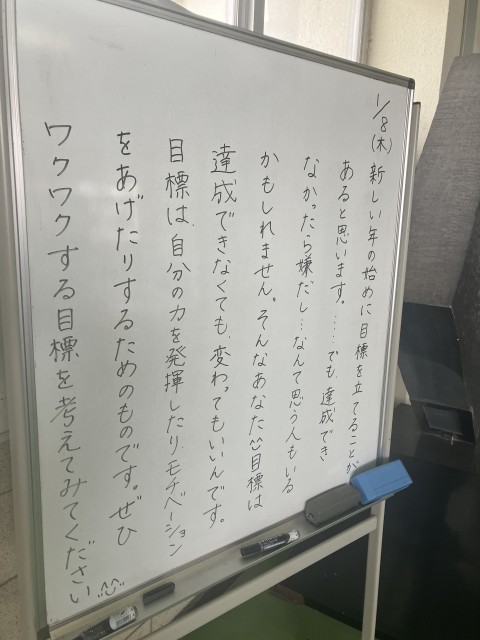 1/8(木) 新しい年の始めに目標を立てることが
あると思います。……でも、達成でき
なかったら嫌だし…なんて思う人もいる
かもしれません。そんなあなた^^目標は
達成できなくても、変わってもいいんです。
目標は、自分の力を発揮したり、モチベーション
をあげたりするためのものです。ぜひ
ワクワクする目標を考えてみてください^^